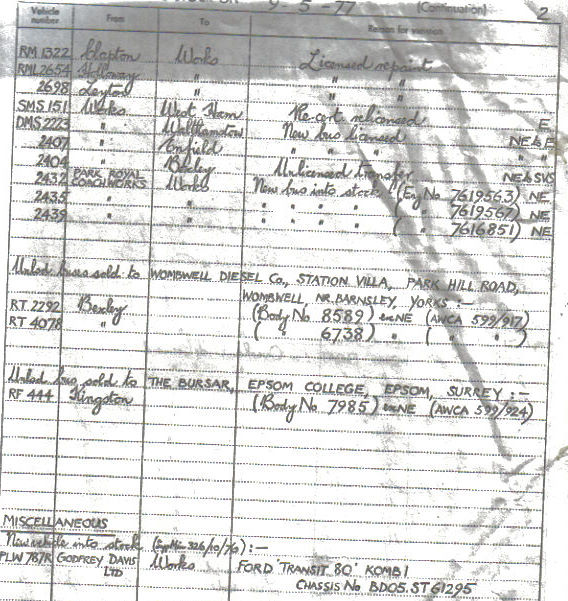 9-5-77 (Continuation) 2
Vehicle number From To Reason for
RM 1322 Clapton Works Licensed repaint
RML 2654 Holloway " " "
2698 Leyton " " "
SMS 151 Works West Ham Re-cert relicensed E
DMS 2223 " Walthamstow New bus licensed NE to E
2407 " Enfield " " " " "
2404 " Bexley Unlicensed transfer NE to SVS
2432 PARK ROYAL COACHWORKS Works New bus into stock (Eng No 7619563) NE
2435 " " " " " " ( " 7619567) NE
2439 " " " " " " ( " 7616851) NE
Unlcd buses sold to WOMBWELL DIESEL Co., STATION VILLA, PARK HILL ROAD,
WOMBWELL, NR. BARNSLEY, YORKS :-
RT 2292 Bexley (Body No 8589) ex NE (AWCA 599/917)
RT 4078 " ( " 6738) " ( " " )
Unlcd bus sold to THE BURSAR, EPSOM COLLEGE, EPSOM, SURREY :-
RF 444 Kingston (Body No 7985) ex NE (AWCA 599/924)
MISCELLANEOUS
New vehicle into stock 326/10/76) :-
PLW 787R GODFREY DAVIS LTD Works FORD 'TRANSIT 80' KOMBI
CHASSIS No BD05.ST 61295